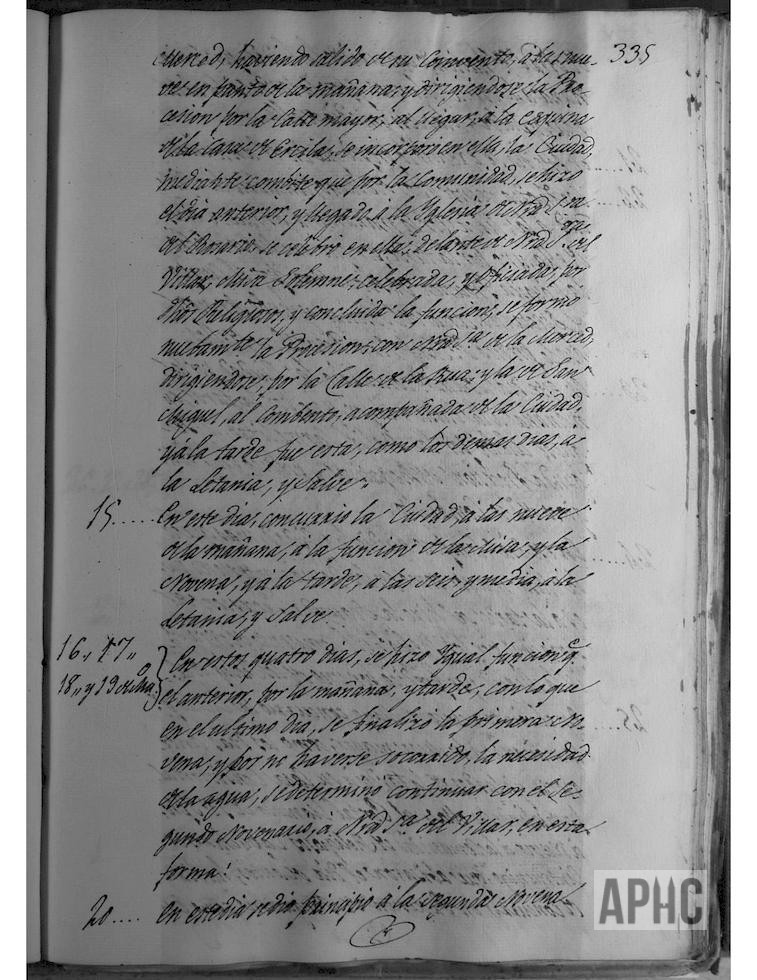 335
Merced, haviendo salido de su Comvento, à las nue-
ve en punto de la mañana, y dirigiendose la Pro-
cesion por la Calle mayor, al llegar, a la esquina
de la casa de Ercilas, se incorporó en ella, la Ciudad,
mediante combite que por la Comunidad, se hizo
el dia anterior, y llegada à la Iglesia de Ntrã Sra
del Rosario se celebró en ella, delante de Ntrã Srã del
Villar, Misa Solemne, celebrada, y oficiada, por
dhos Religiosos, y concluida la funcion, se formó
nuebamte la Procesion, con Ntrã Sra de la Merced,
dirigiendose, por la Calle de la Rua, y la de San
Miguel, al Combento, acompañada de la Ciudad,
y à la tarde fue esta, como los demas dias, à
la Letania, y Salve.
15.... En este dia, concurrio la Ciudad, à las nueve
de la mañana, a la funcion de la Misa, y la
Novena, y à la tarde, à las seis y media, à la
Letania, y Salve
16,, 17,,
18,, y 19 de Mzo. } En estos quatro dias, se hizo Ygual funcion q.
el anterior, por la mañana, y tarde, con lo que
en el ultimo dia, se finalizó la primera No-
vena, y por no haverse socorrido, la necesidad
de la agua, se determinó continuar con el Se-
gundo Novenario, à Ntrã Sra del Villar, en esta
forma:
20.... En este dia se dio principio à la segunda Novena
APHC